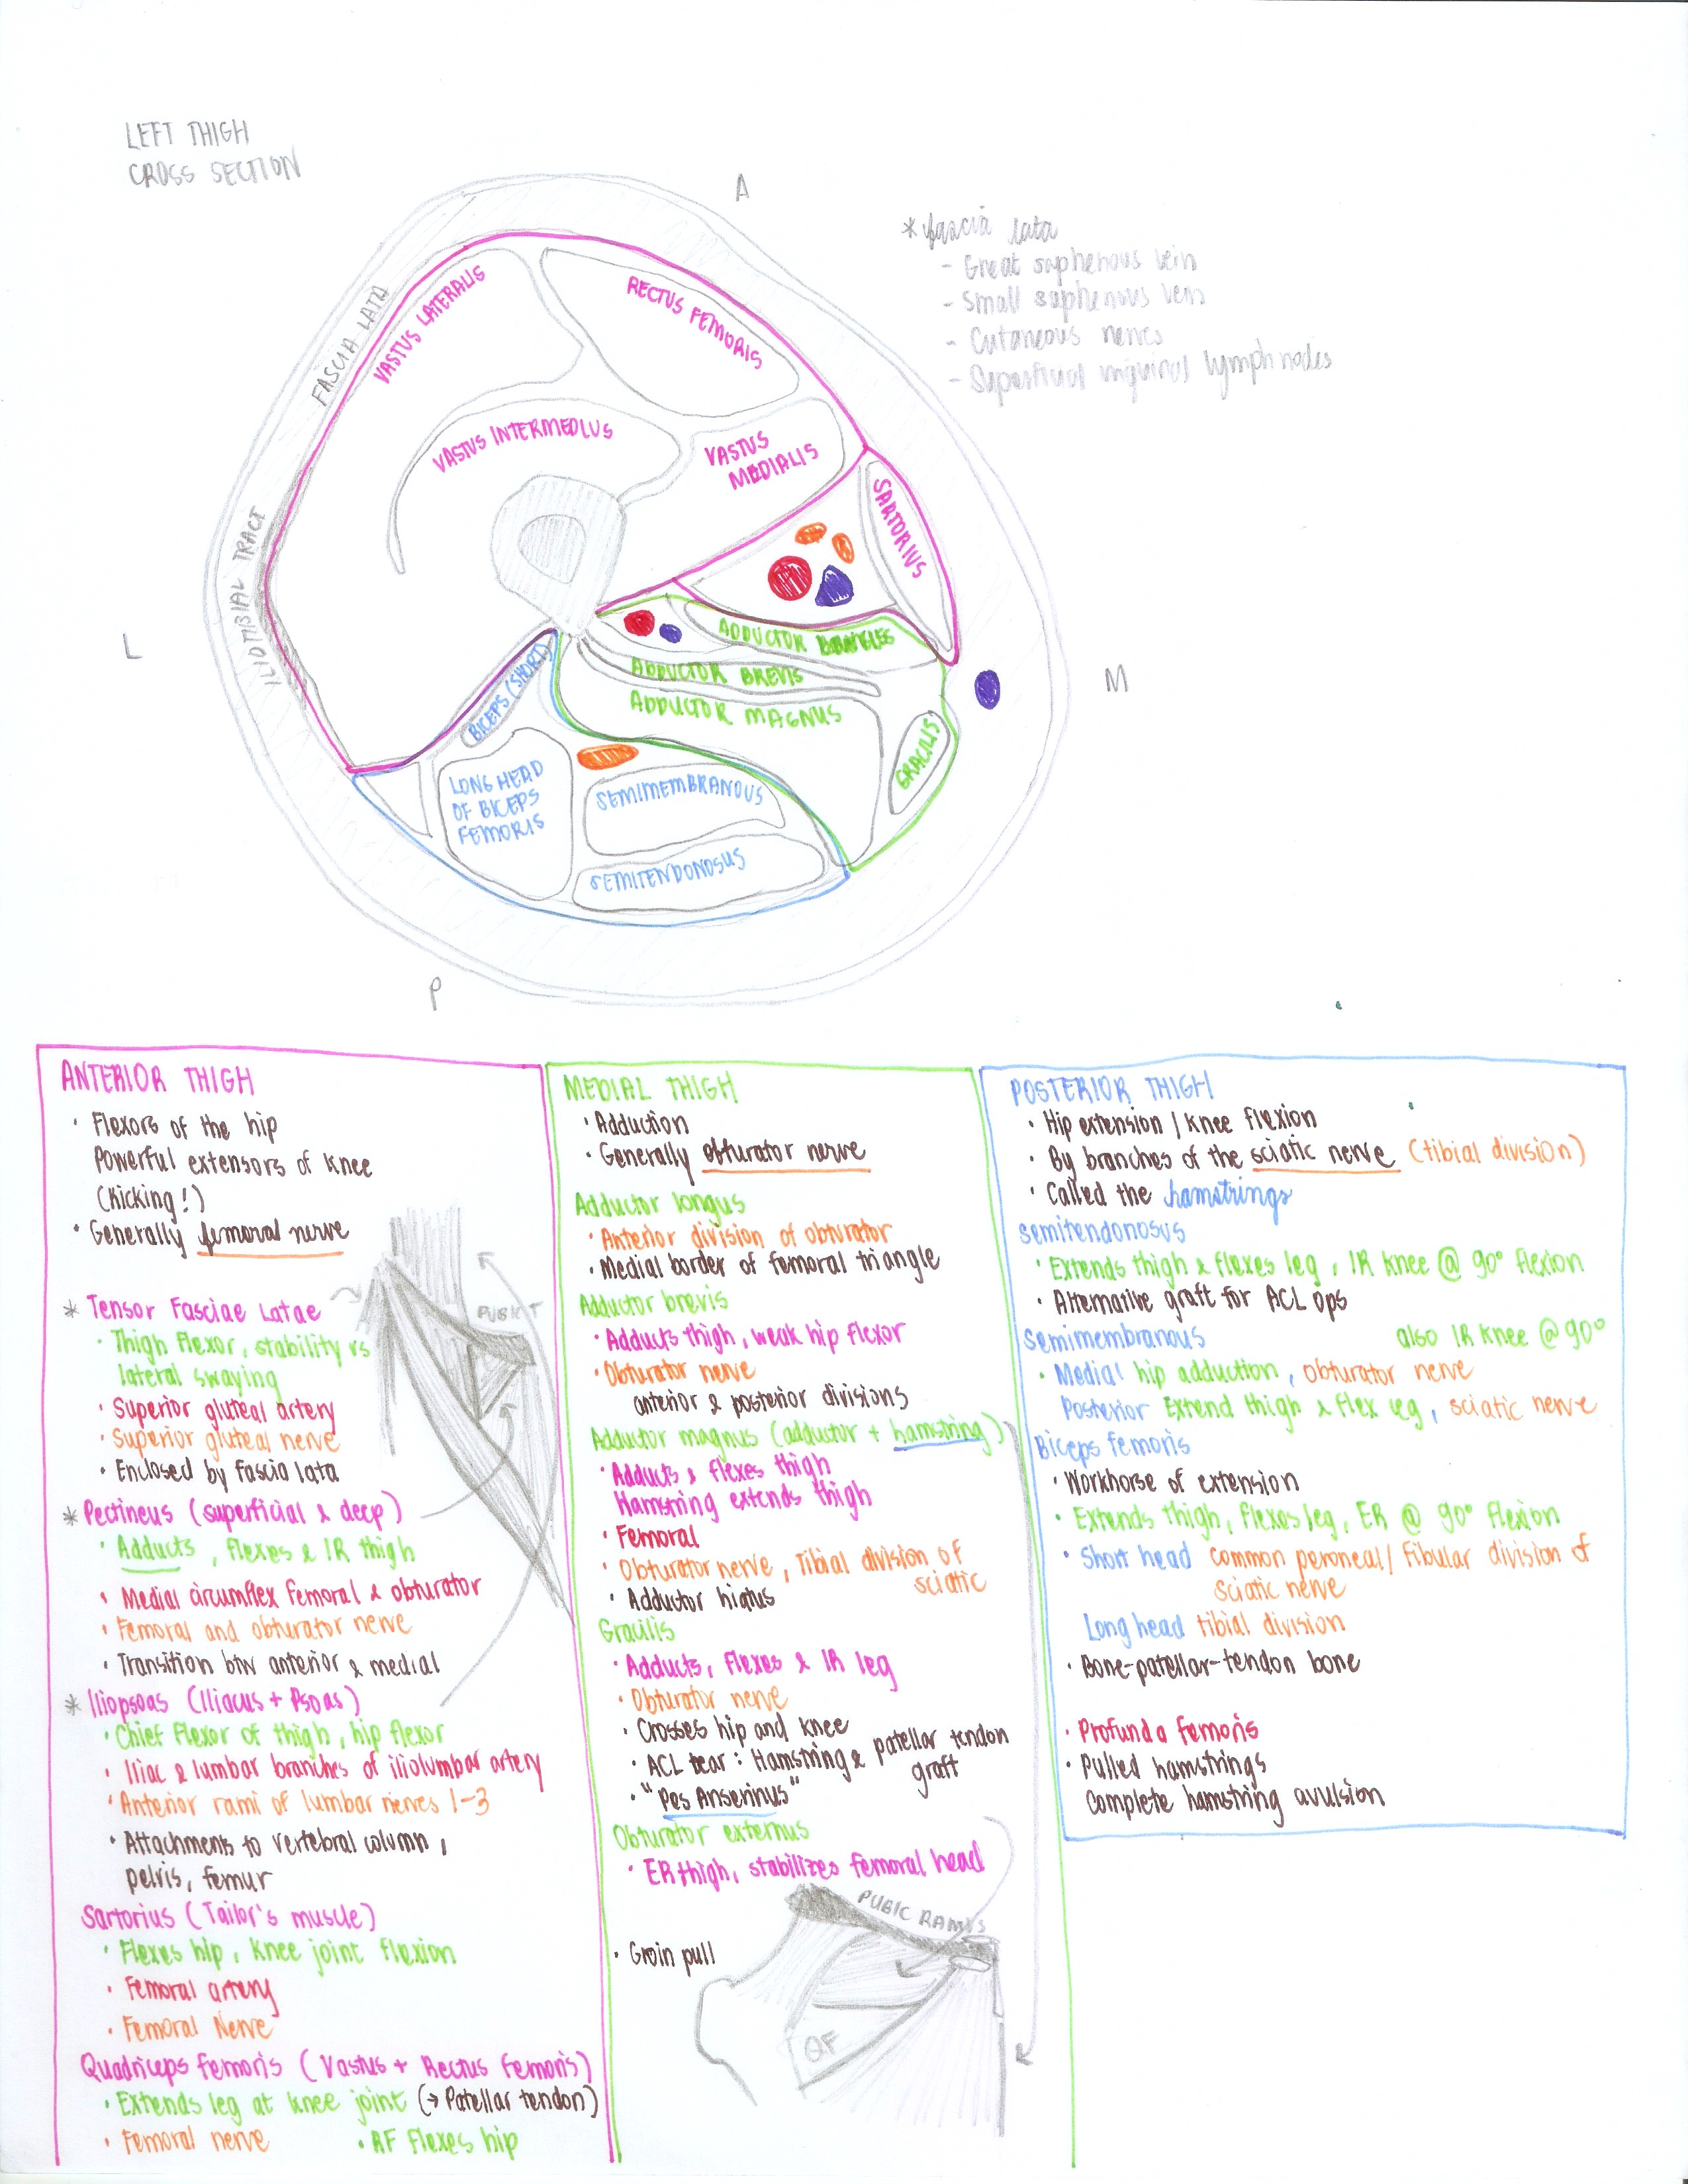 LEFT THIGH
CROSS SECTION
A
* fascia lata
- Great saphenous vein
- Small saphenous vein
- Cutaneous nerves
- Superficial inguinal lymph nodes
FASCIA LATA
VASTUS LATERALIS
RECTUS FEMORIS
VASTUS INTERMEDIUS
VASTUS
MEDIALIS
SARTORIUS
ILIOTIBIAL TRACT
L
M
ADDUCTOR
ADDUCTOR BREVIS
ADDUCTOR MAGNUS
GRACILIS
BICEPS (SHORT)
LONG HEAD
OF BICEPS
FEMORIS
SEMIMEMBRANOUS
SEMITENDONOSUS
P
ANTERIOR THIGH
• Flexors of the hip
Powerful extensors of knee
(Kicking!)
• Generally femoral nerve
* Tensor Fasciae Latae
• Thigh flexor, stability vs
lateral swaying
• Superior gluteal artery
• Superior gluteal nerve
• Enclosed by fascia lata
* Pectineus (superficial & deep)
• Adducts, flexes & IR thigh
• Medial circumflex femoral & obturator
• Femoral and obturator nerve
• Transition btw anterior & medial
* Iliopsoas (Iliacus + Psoas)
• Chief flexor of thigh, hip flexor
• Iliac & lumbar branches of iliolumbar artery
• Anterior rami of lumbar nerves 1-3
• Attachments to vertebral column,
pelvis, femur
Sartorius (Tailor's muscle)
• Flexes hip, knee joint flexion
• Femoral artery
• Femoral Nerve
Quadriceps femoris (Vastus + Rectus femoris)
• Extends leg at knee joint (→ Patellar tendon)
• Femoral nerve • RF flexes hip
PUBIC T
MEDIAL THIGH
• Adduction
• Generally obturator nerve
Adductor longus
• Anterior division of obturator
• Medial border of femoral triangle
Adductor brevis
• Adducts thigh, weak hip flexor
• Obturator nerve
anterior & posterior divisions
Adductor magnus (adductor + hamstring)
• Adducts & flexes thigh
Hamstring extends thigh
• Femoral
• Obturator nerve, Tibial division of
sciatic
• Adductor hiatus
Gracilis
• Adducts, flexes & IR leg
• Obturator nerve
• Crosses hip and knee
• ACL tear: Hamstring & patellar tendon
graft
• "Pes Anserinus"
Obturator externus
• ER thigh, stabilizes femoral head
PUBIC RAMUS
• Groin pull
QF
POSTERIOR THIGH
• Hip extension / knee flexion
• By branches of the sciatic nerve (tibial division)
• Called the hamstrings
Semitendonosus
• Extends thigh & flexes leg, IR knee @ 90° flexion
• Alternative graft for ACL ops
Semimembranous also IR knee @ 90°
• Medial hip adduction, obturator nerve
Posterior Extend thigh & flex leg, sciatic nerve
Biceps femoris
• Workhorse of extension
• Extends thigh, flexes leg, ER @ 90° flexion
• Short head common peroneal / fibular division of
sciatic nerve
Long head tibial division
• Bone-patellar-tendon bone
• Profunda femoris
• Pulled hamstrings
Complete hamstring avulsion